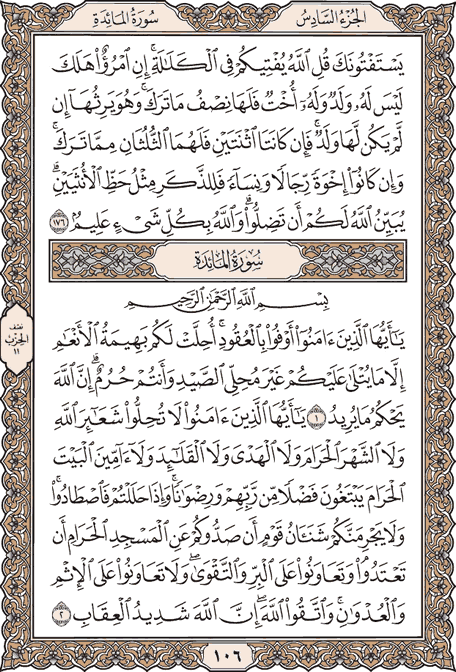 سُورَةُ المَائِدَةِ الجُزْءُ السَّادِسُ
يَسْتَفْتُونَكَ قُلِ ٱللَّهُ يُفْتِيكُمْ فِي ٱلْكَلَٰلَةِ ۚ إِنِ ٱمْرُؤٌا۟ هَلَكَ
لَيْسَ لَهُۥ وَلَدٌ وَلَهُۥٓ أُخْتٌ فَلَهَا نِصْفُ مَا تَرَكَ ۚ وَهُوَ يَرِثُهَآ إِن
لَّمْ يَكُن لَّهَا وَلَدٌ ۚ فَإِن كَانَتَا ٱثْنَتَيْنِ فَلَهُمَا ٱلثُّلُثَانِ مِمَّا تَرَكَ ۚ
وَإِن كَانُوٓا۟ إِخْوَةً رِّجَالًا وَنِسَآءً فَلِلذَّكَرِ مِثْلُ حَظِّ ٱلْأُنثَيَيْنِ ۗ
يُبَيِّنُ ٱللَّهُ لَكُمْ أَن تَضِلُّوا۟ ۗ وَٱللَّهُ بِكُلِّ شَىْءٍ عَلِيمٌۢ ١٧٦
سُورَةُ المَائِدَةِ
بِسْمِ ٱللَّهِ ٱلرَّحْمَٰنِ ٱلرَّحِيمِ
يَٰٓأَيُّهَا ٱلَّذِينَ ءَامَنُوٓا۟ أَوْفُوا۟ بِٱلْعُقُودِ ۚ أُحِلَّتْ لَكُم بَهِيمَةُ ٱلْأَنْعَٰمِ
إِلَّا مَا يُتْلَىٰ عَلَيْكُمْ غَيْرَ مُحِلِّى ٱلصَّيْدِ وَأَنتُمْ حُرُمٌ ۗ إِنَّ ٱللَّهَ
يَحْكُمُ مَا يُرِيدُ ١ يَٰٓأَيُّهَا ٱلَّذِينَ ءَامَنُوا۟ لَا تُحِلُّوا۟ شَعَٰٓئِرَ ٱللَّهِ
وَلَا ٱلشَّهْرَ ٱلْحَرَامَ وَلَا ٱلْهَدْىَ وَلَا ٱلْقَلَٰٓئِدَ وَلَآ ءَآمِّينَ ٱلْبَيْتَ
ٱلْحَرَامَ يَبْتَغُونَ فَضْلًا مِّن رَّبِّهِمْ وَرِضْوَٰنًا ۚ وَإِذَا حَلَلْتُمْ فَٱصْطَادُوا۟ ۚ
وَلَا يَجْرِمَنَّكُمْ شَنَـَٔانُ قَوْمٍ أَن صَدُّوكُمْ عَنِ ٱلْمَسْجِدِ ٱلْحَرَامِ أَن
تَعْتَدُوا۟ ۘ وَتَعَاوَنُوا۟ عَلَى ٱلْبِرِّ وَٱلتَّقْوَىٰ ۖ وَلَا تَعَاوَنُوا۟ عَلَى ٱلْإِثْمِ
وَٱلْعُدْوَٰنِ ۚ وَٱتَّقُوا۟ ٱللَّهَ ۖ إِنَّ ٱللَّهَ شَدِيدُ ٱلْعِقَابِ ٢
نصف
الحزب
١١
١٠٦